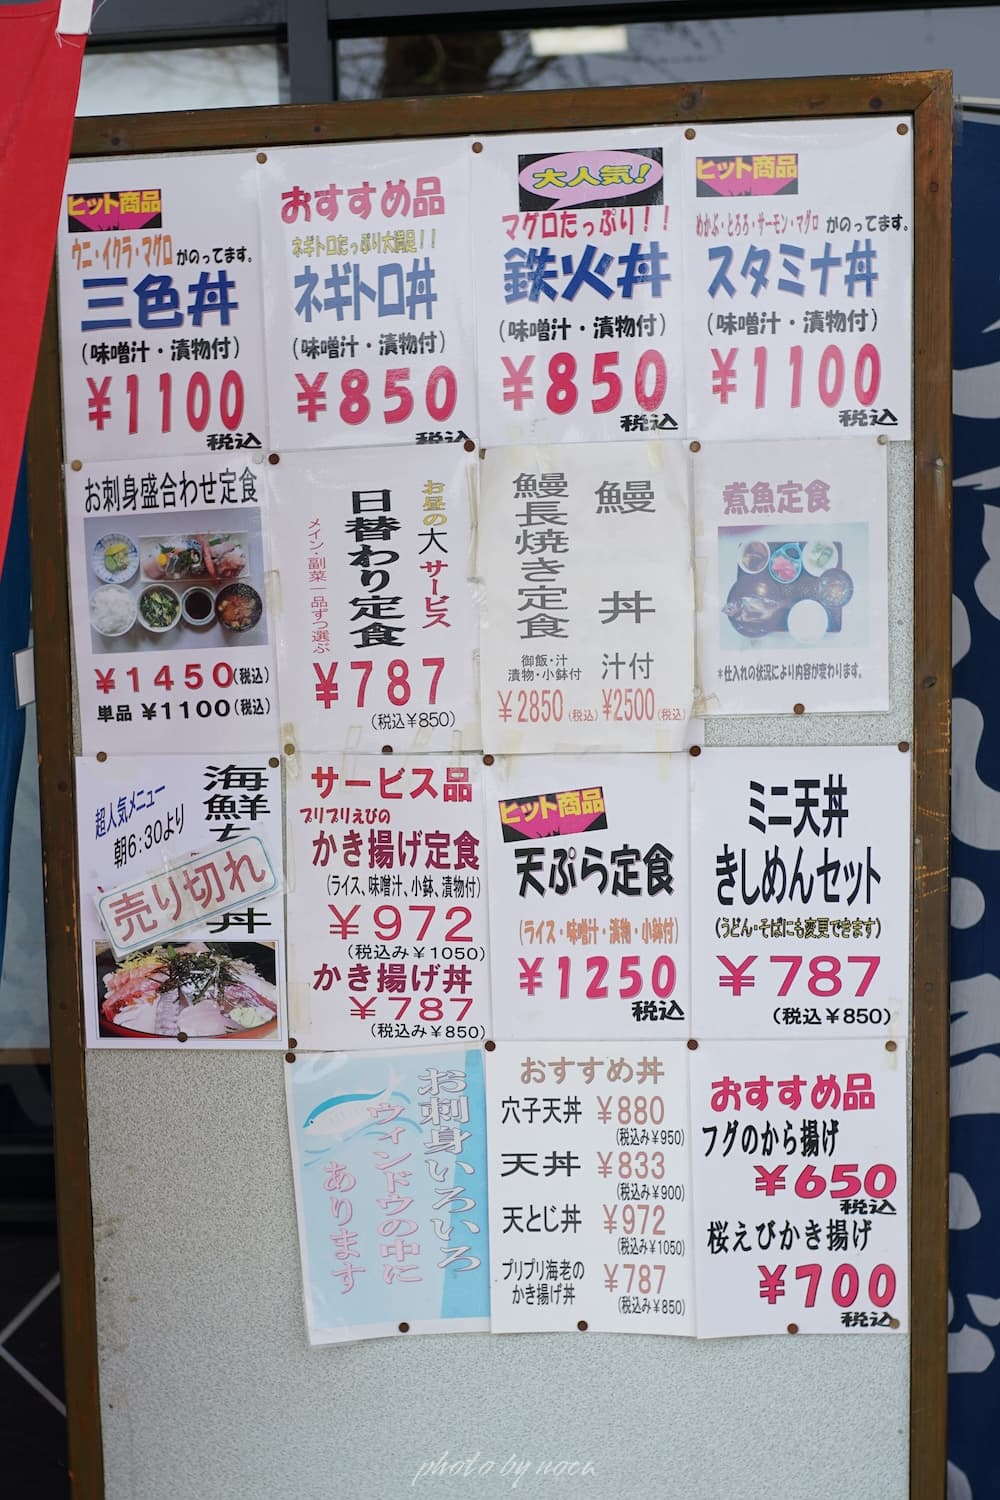 ヒット商品
ウニ・イクラ・マグロがのってます。
三色丼
(味噌汁・漬物付)
¥1100
税込
おすすめ品
ネギトロたっぷり大満足!!
ネギトロ丼
(味噌汁・漬物付)
¥850
税込
大人気!
マグロたっぷり!!
鉄火丼
(味噌汁・漬物付)
¥850
税込
ヒット商品
めかぶ・とろろ・サーモン・マグロ がのってます。
スタミナ丼
(味噌汁・漬物付)
¥1100
税込
お刺身盛合わせ定食
¥1450(税込)
単品 ¥1100(税込)
お昼の大サービス
日替わり定食
メイン・副菜一品ずつ選ぶ
¥787
(税込¥850)
鰻丼
汁付
¥2500(税込)
鰻長焼き定食
御飯・汁
漬物・小鉢付
¥2850(税込)
煮魚定食
*仕入れの状況により内容が変わります。
超人気メニュー
朝6:30より
海鮮
丼
売り切れ
サービス品
プリプリえびの
かき揚げ定食
(ライス、味噌汁、小鉢、漬物付)
¥972
(税込み¥1050)
かき揚げ丼
¥787
(税込み¥850)
ヒット商品
天ぷら定食
(ライス・味噌汁・漬物・小鉢付)
¥1250
税込
ミニ天丼
きしめんセット
(うどん・そばにも変更できます)
¥787
(税込¥850)
お刺身いろいろ
ウィンドウの中に
あります
おすすめ丼
穴子天丼 ¥880
(税込み¥950)
天丼 ¥833
(税込み¥900)
天とじ丼 ¥972
(税込み¥1050)
プリプリ海老の
かき揚げ丼 ¥787
(税込み¥850)
おすすめ品
フグのから揚げ
¥650
税込
桜えびかき揚げ
¥700
税込
photo by nocu